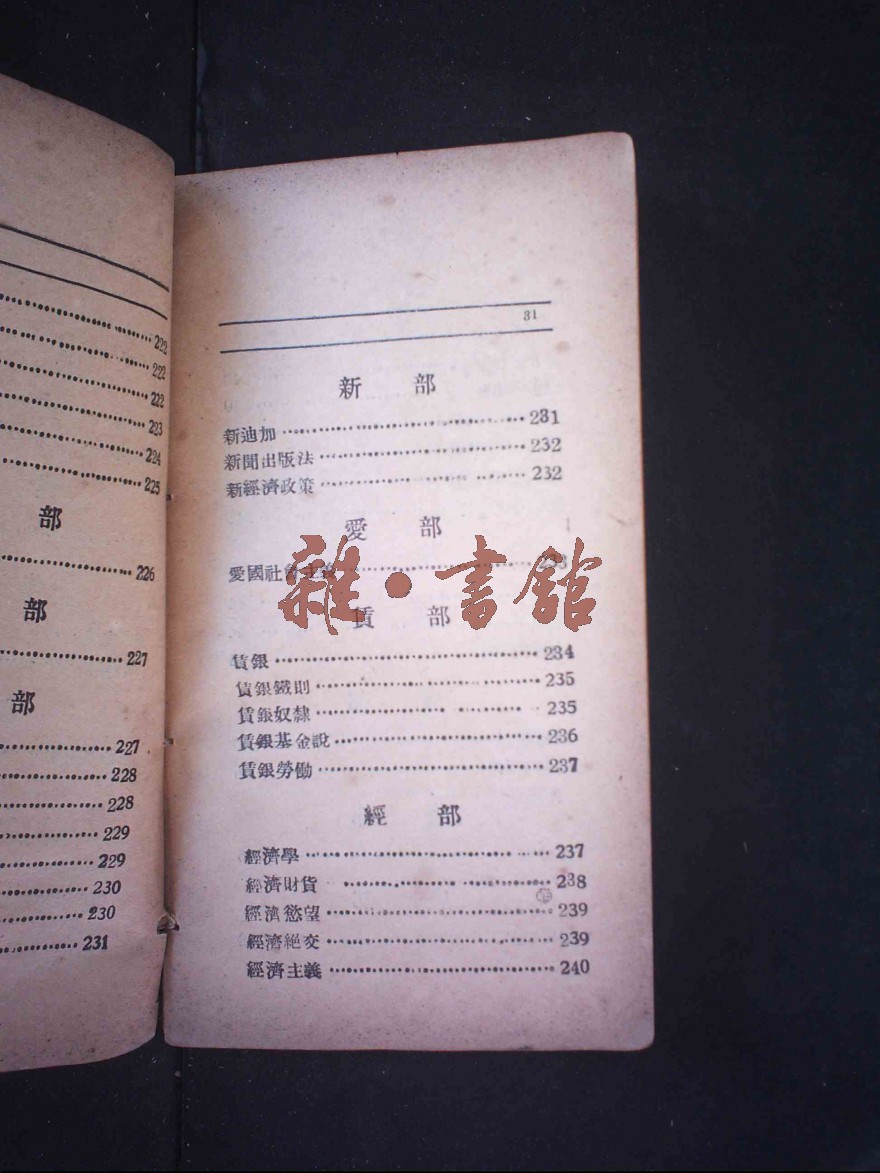 222
222
222
223
224
225
部
226
部
227
部
227
228
228
229
229
230
230
231
31
新 部
新迪加 231
新聞出版法 232
新經濟政策 232
愛 部
愛國社會主義 233
賃 部
賃銀 234
賃銀鐵則 235
賃銀奴隸 235
賃銀基金說 236
賃銀勞働 237
經 部
經濟學 237
經濟財貨 238
經濟慾望 239
經濟絕交 239
經濟主義 240
雜·書館